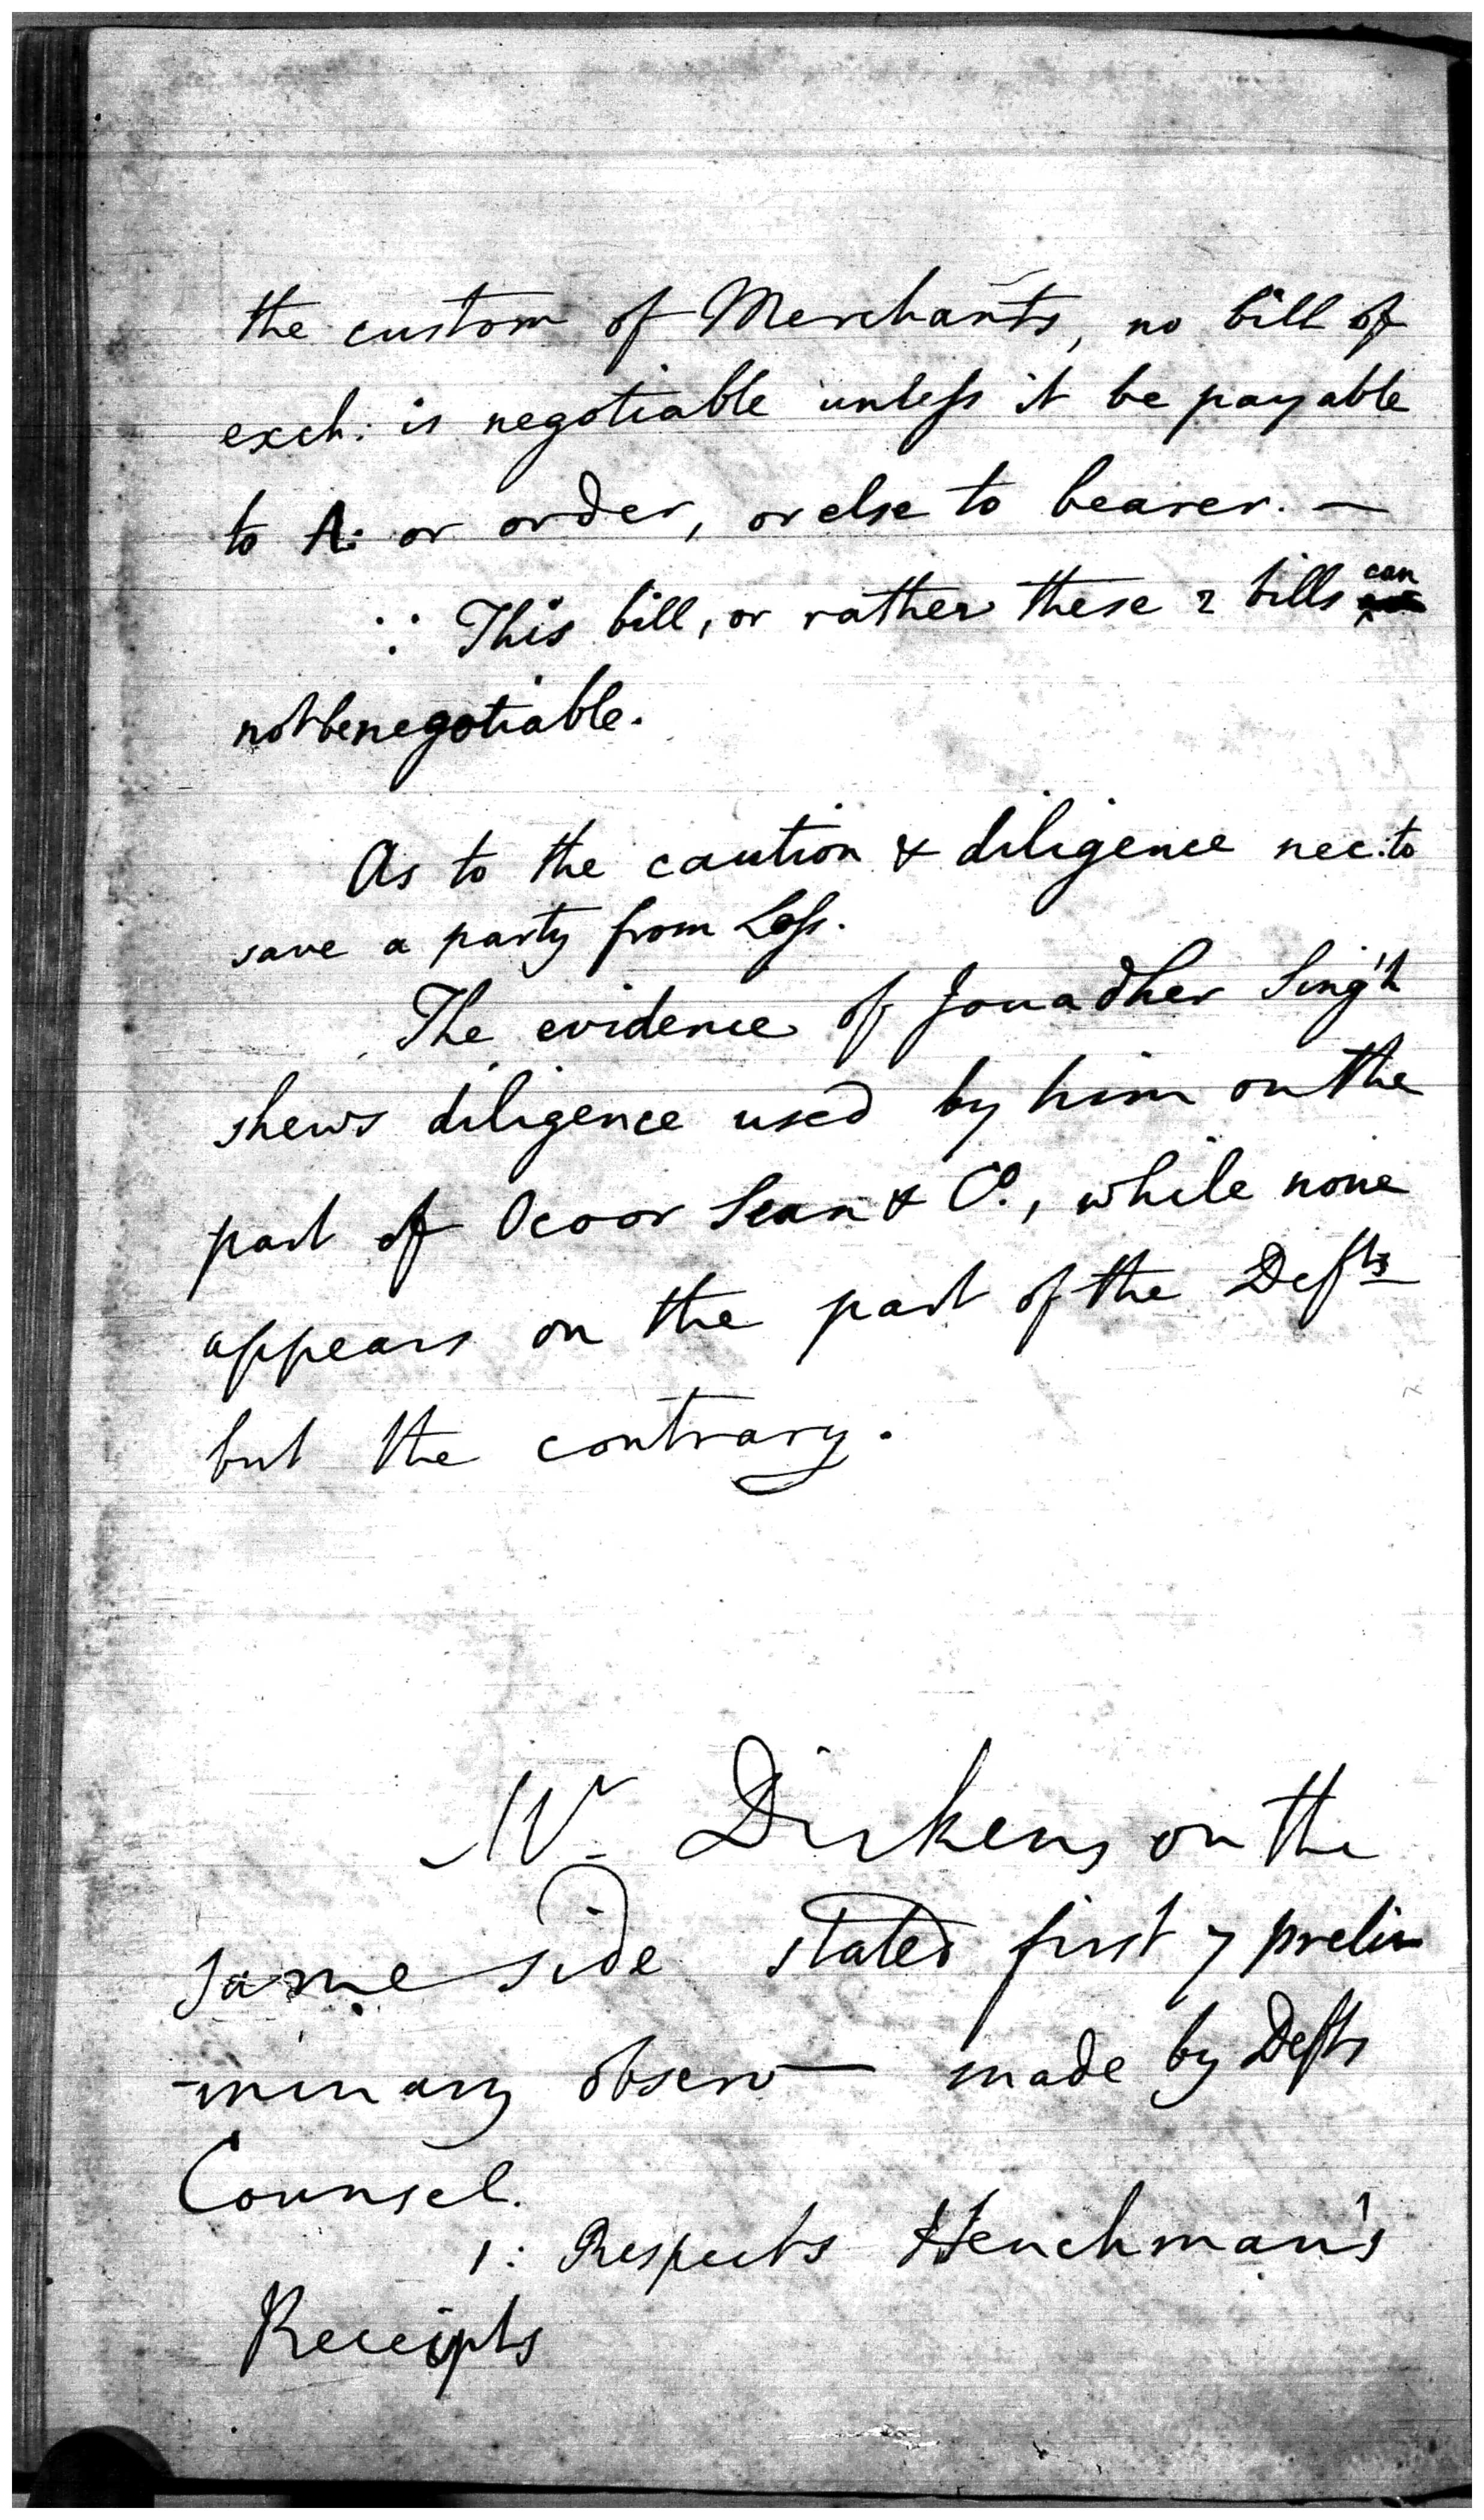 the custom of Merchants, no bill of
exch: is negotiable unless it be payable
to A: or order, or else to bearer. —
∴ This bill, or rather these 2 bills can
not be negotiable.
As to the caution & diligence nec: to
save a party from Loss.
The evidence of Jouadher Sing'h
shews diligence used by him on the
part of Ocoor Sean & Co., while none
appears on the part of the Defts
but the contrary.
Mr Dickens on the
same side stated first y prelim
-minary observ— made by Defts
Counsel.
1: Respects Henchman's
Receipts